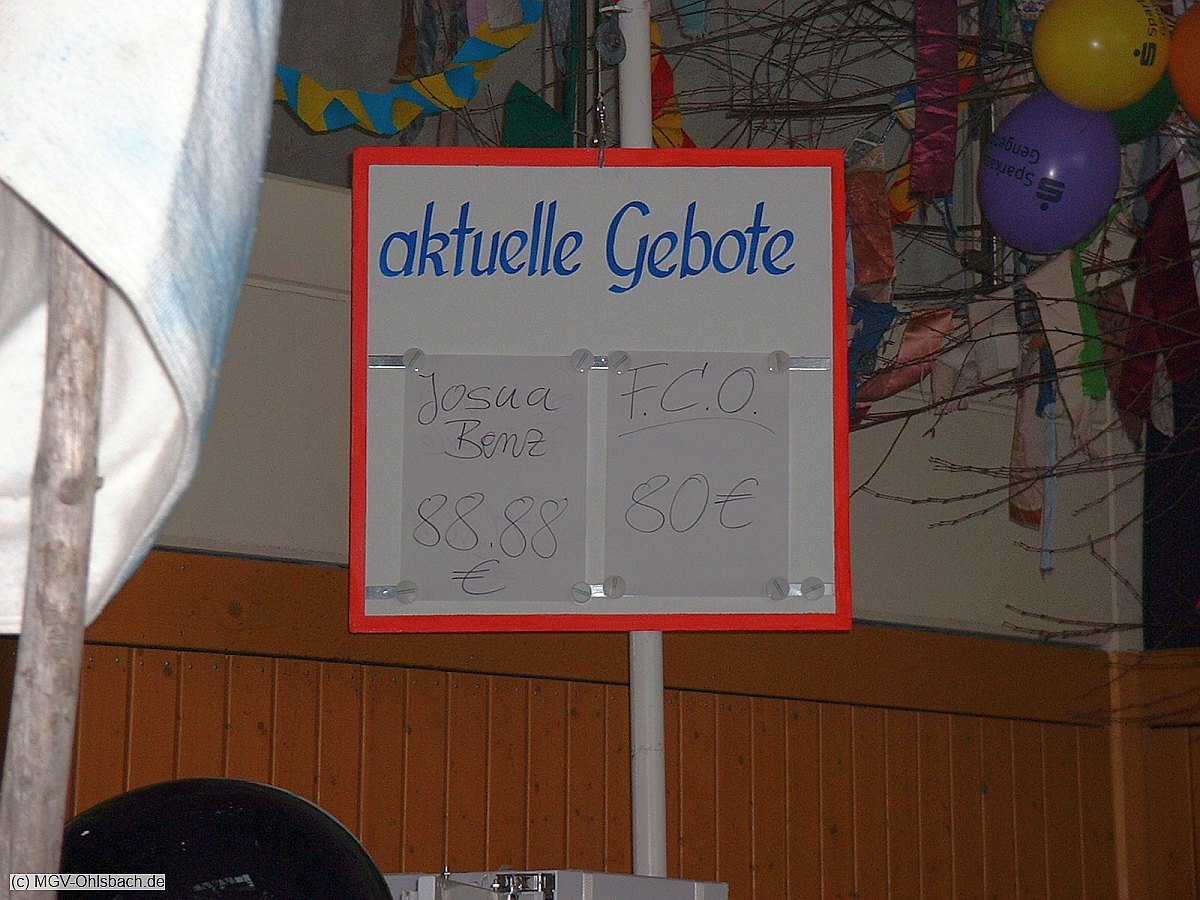 aktuelle Gebote
Josua
Benz
88.88
€
F.C.O.
80€
Sparkasse
Gengenb
(c) MGV-Ohlsbach.de